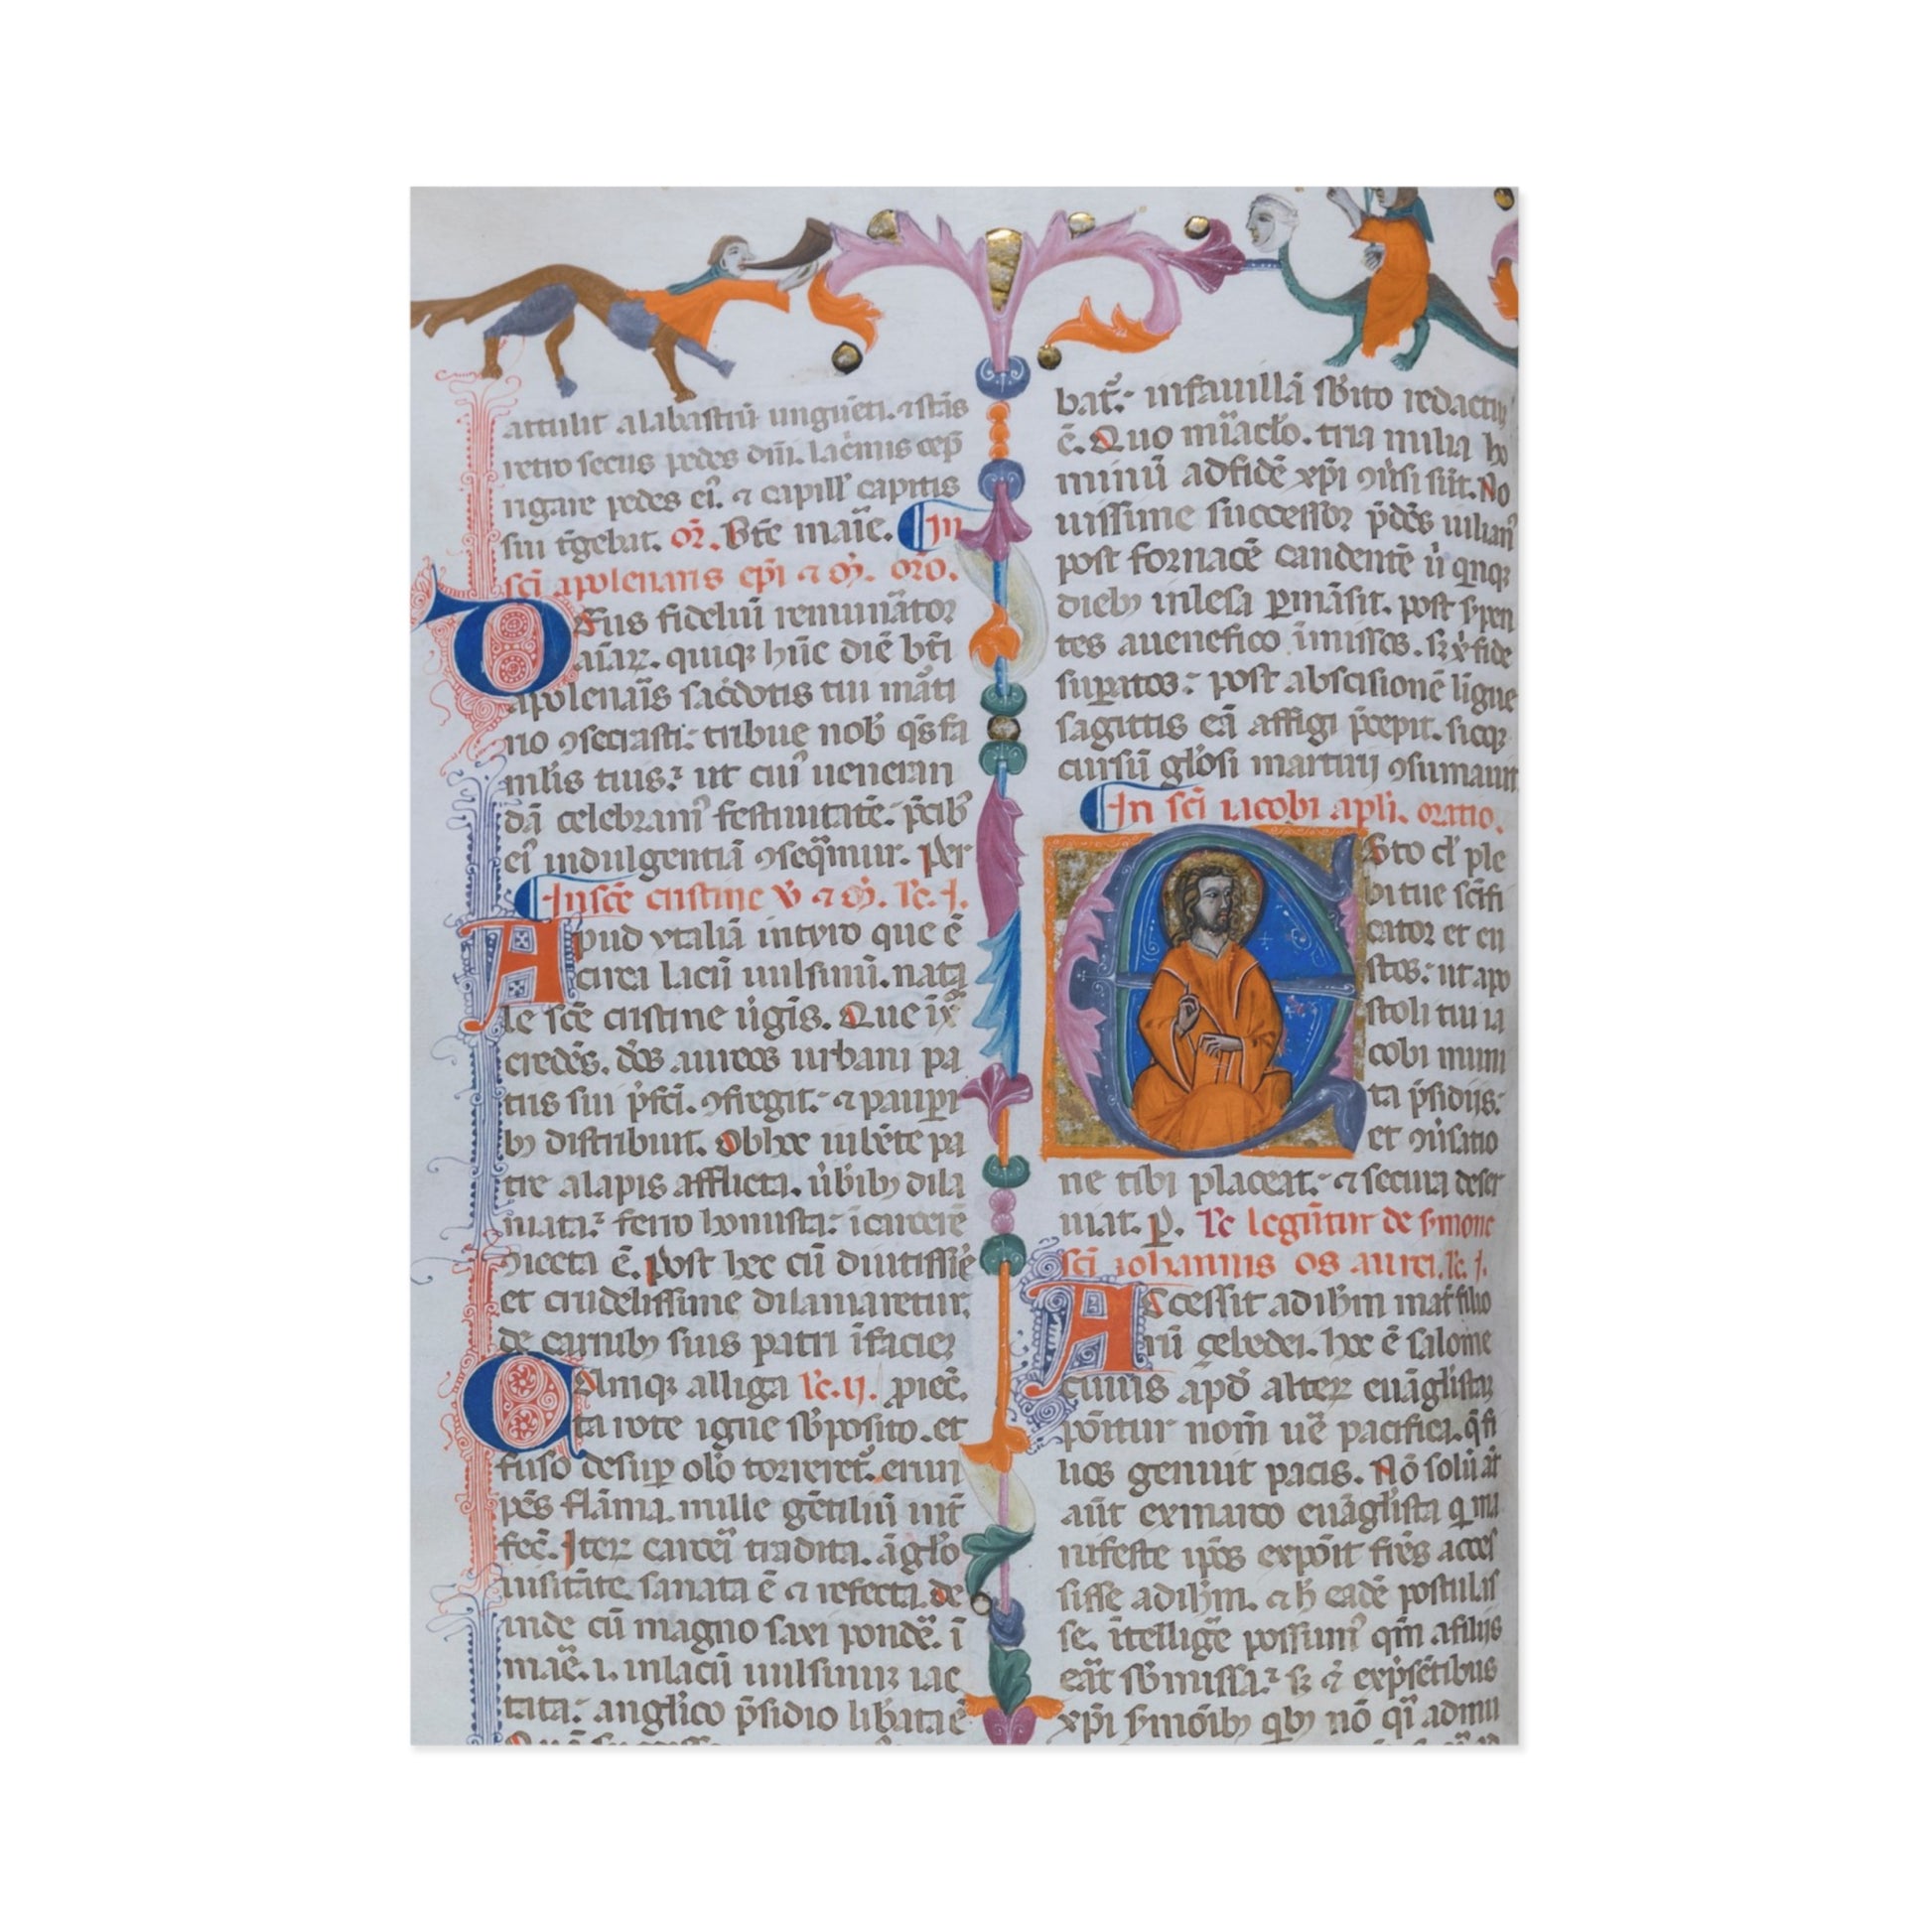 attulit alabastrū unguēti. ⁊ stās
retro secus pedes dn̄i. lac̄mis cep̄
rigare pedes eı̄. ⁊ capill' capitis
sui t̄gebat. or̄. Bt̄e maı̄e. In
sc̄i apolenaris ep̄i ⁊ m̄. or̄o.
DEus fideliū remun̄ator
aı̄aꝝ. quiqꝫ hūc diē bt̄i
apolenaı̄s sac̄dotis tui mar̄ti
rio ꝯsecrasti: tribue nob' q̄s fa
ml̄is tuis: ut cuı' ueneran
dā celebram' festiuitatē: p̄cib'
eı' indulgentiā ꝯseq̄mur. Per
In sc̄e cristine v̄ ⁊ m̄. lc̄. i.
Apud ytaliā in tyro que ē
circa lacū uulsinū. nata
le sc̄e cristine ūgis. Que ı̄ x̄
credēs. dōs aureos urbani pa
tris sui p̄fc̄i. ꝯfregit: ⁊ paupi
bꝫ distribuit. Ob hoc iubēte pa
tre alapis afflicta. ūb̄ibꝫ dila
niata: ferro honusta: ı̄ carcerē
ꝯiecta ē. post hec cū diutissīe
et crudelissime dilaniaretur,
de carnibꝫ suis patri ı̄ facieꝫ
Quāqꝫ alliga lc̄. ij. ꝓiec̄.
ta rote igne sb̄posito. et
fuso desup olo torreret'. erum
pēs flāma. mille gētiliū int̄
fec̄. Iteꝝ carceı̄ tradita. āgl'o
uisitāte sanata ē ⁊ refecta. de
inde cū magno saxi pondē. ı̄
maē. i. in lacū uulsinuꝫ iac
tata: anglico p̄sidio lib̄ata ē
bat': in fauillā sb̄ito redact'
ē. Quo mı̄aclo. tria milia ho
minū ad fidē xp̄i ꝯūsi sūt. No
uissime successor p̄dēs iulian'
post fornacē candentē ū qnqꝫ
diebꝫ inlesa pmāsit. post sypen
tes a uenefico ı̄missos. sꝫ x̄ fide
supatos: post abscisionē ligue
sagittis eā affigi p̄cepit. sicqꝫ
cursū gl̄osi martirij ꝯsumauit
In sc̄i iacobi apl̄i. oratio.
Esto d' ple
bi tue sc̄ifi
cator et cu
stos: ut apo
stoli tui ia
cobi muni
ta p̄sidijs:
et ꝯūsatio
ne tibi placeat: ⁊ secura deser
uiat. p̄. lc̄ legūtur de s̄mone
sc̄i iohannis os aurei. lc̄. i.
Accessit ad ih̄m mat' filio
rū çebedei. hec ē salome
cuius apd̄ alteꝝ euāglistaꝫ
pōitur nom̄ ue pacifica. q̄ fi
lios genuit pacis. Nō solū at̄
aūt ex marco euāglista q ma
nifeste ip̄os expōit fr̄es acces
sisse ad ih̄m. ⁊ h' eadē postulas
se. ı̄telliḡe possum' qm̄ a filijs
eāt sb̄missa: sꝫ ⁊ exp̄sētibus
xp̄i s̄mōibꝫ qbꝫ nō qı' admu